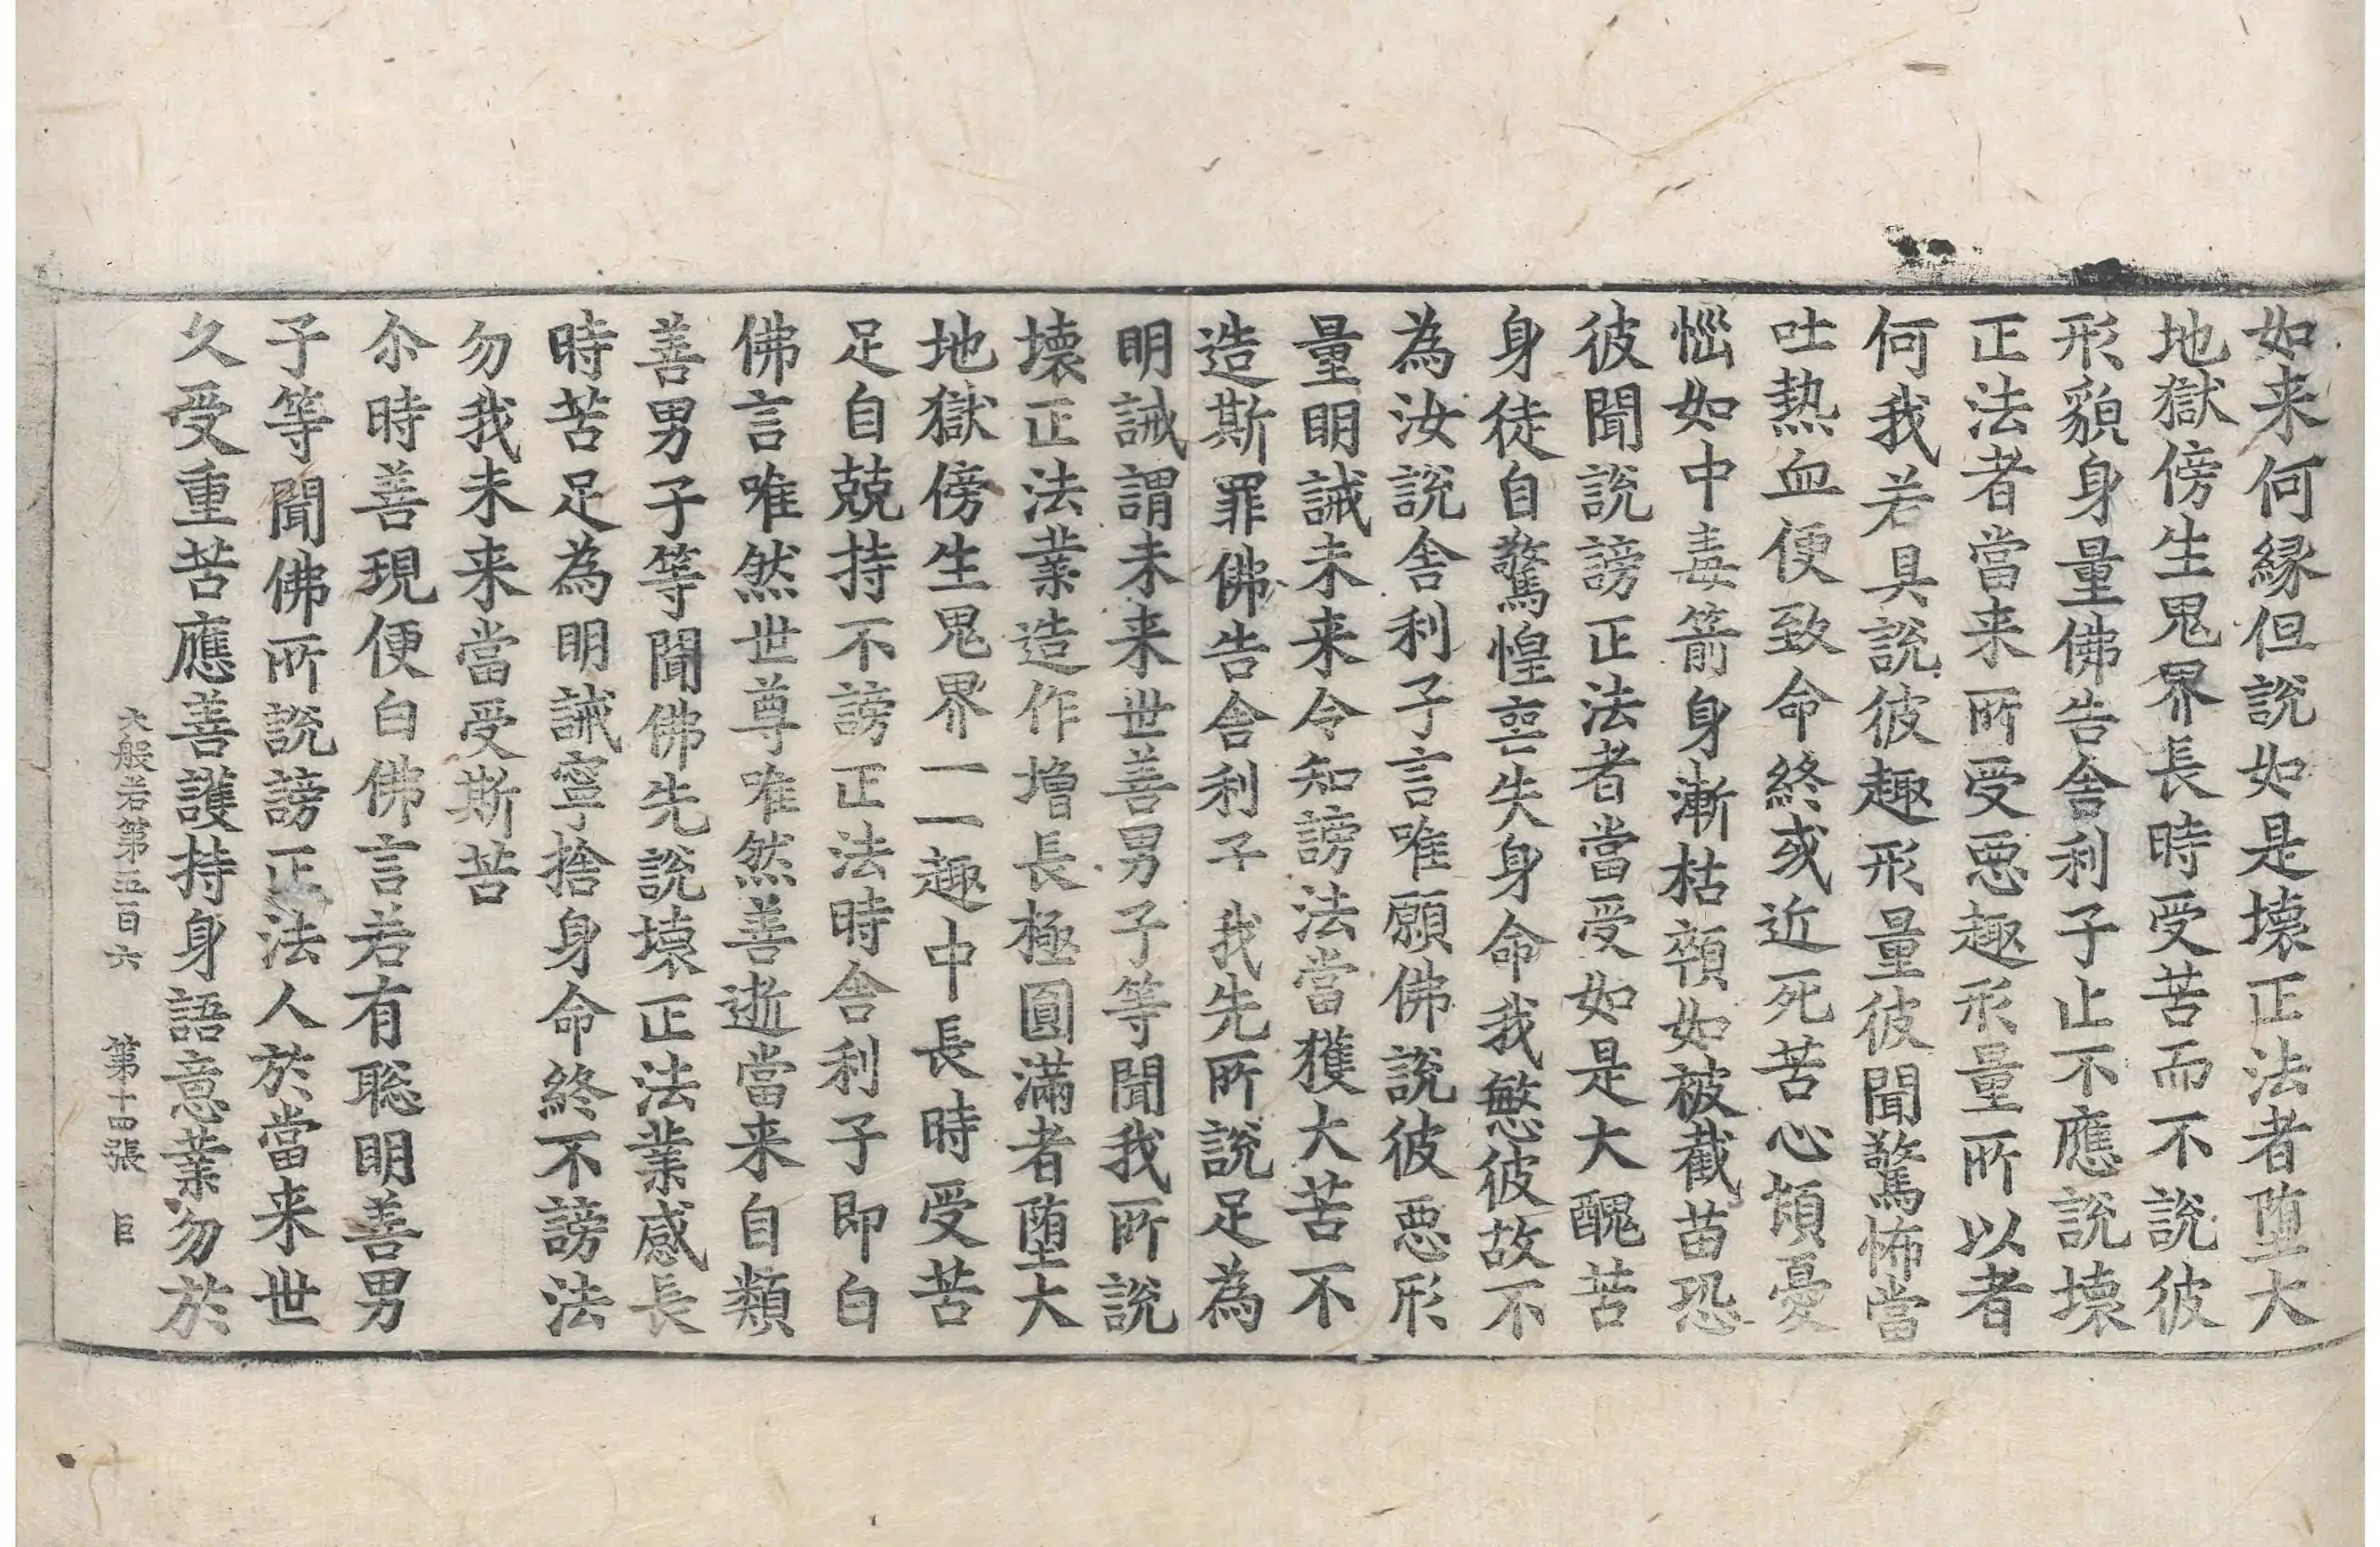 如来何縁但說如是壞正法者堕大
地獄傍生鬼界長時受苦而不說彼
形貌身量佛告舎利子止不應說壞
正法者當来所受惡趣形量所以者
何我若具說彼趣形量彼聞驚怖當
吐熱血便致命終或近死苦心頓憂
惱如中毒箭身漸枯顇如被截苗恐
彼聞說謗正法者當受如是大醜苦
身徒自驚惶喪失身命我愍彼故不
為汝說舎利子言唯願佛說彼惡形
量明誡未来令知謗法當獲大苦不
造斯罪佛告舎利子我先所說足為
明誡謂未来世善男子等聞我所說
壞正法業造作增長極圓滿者堕大
地獄傍生鬼界一一趣中長時受苦
足自兢持不謗正法時舎利子即白
佛言唯然世尊唯然善逝當来自類
善男子等聞佛先說壞正法業感長
時苦足為明誡寧捨身命終不謗法
勿我未来當受斯苦
尒時善現便白佛言若有聡明善男
子等聞佛所說謗正法人於當来世
久受重苦應善護持身語意業勿於
大般若第五百六　第十四張　巨